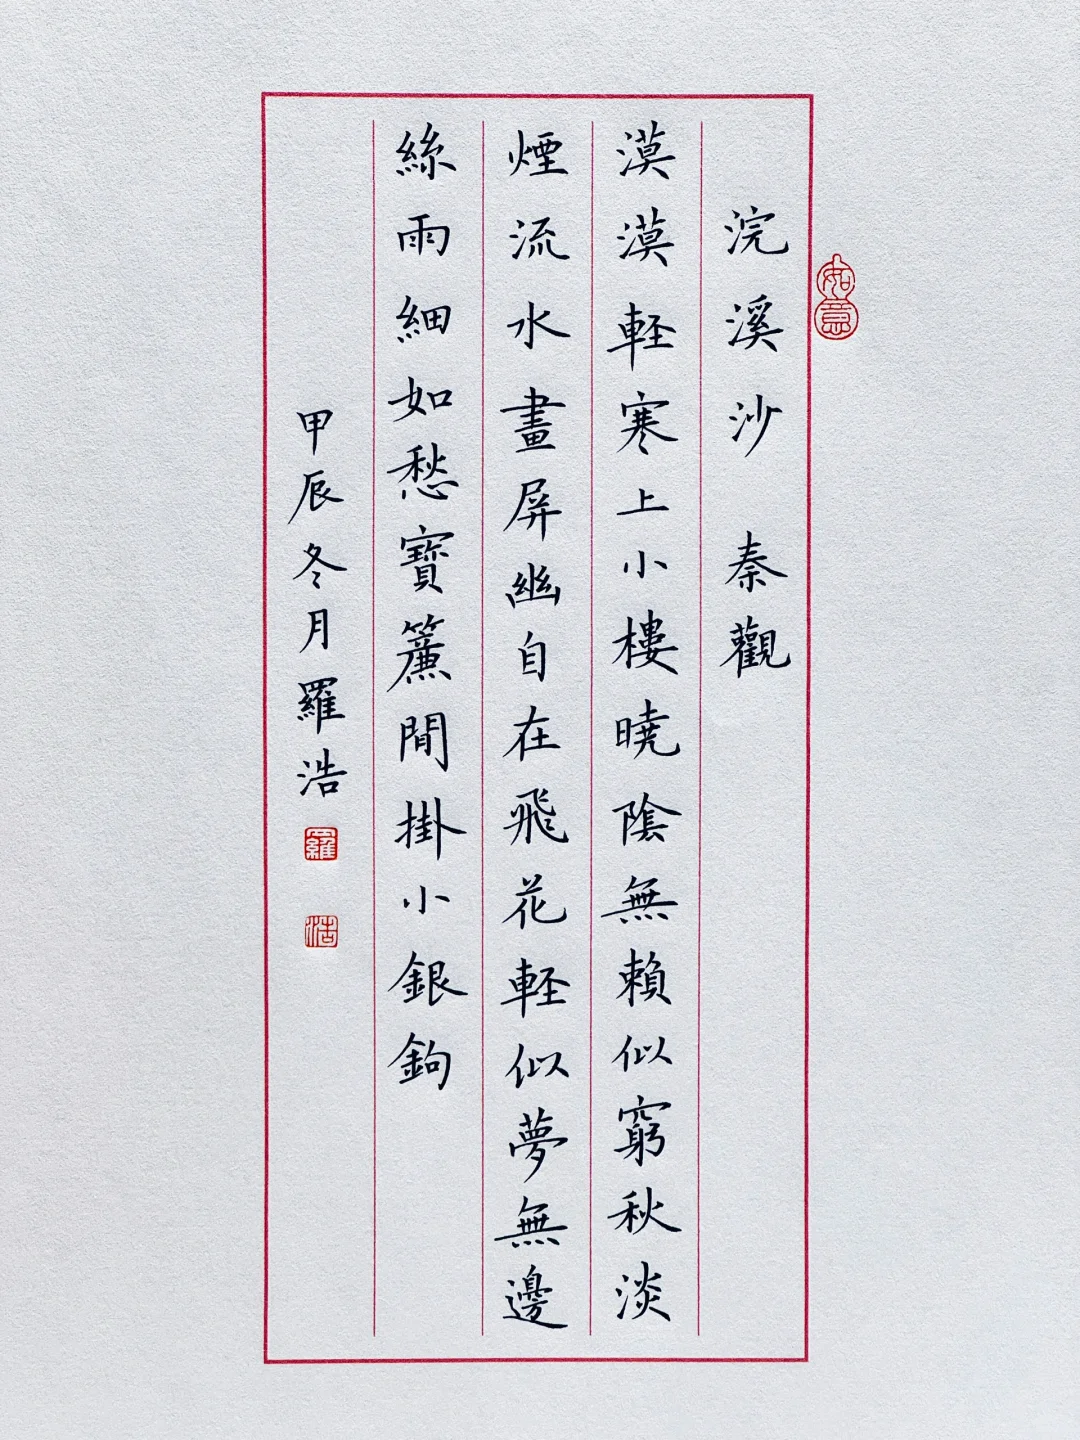 浣溪沙 秦觀
漠漠軽寒上小樓曉陰無賴似窮秋淡
煙流水畫屏幽自在飛花軽似夢無邊
絲雨細如愁寶簾閒掛小銀鉤
甲辰冬月羅浩
羅
浩
如意